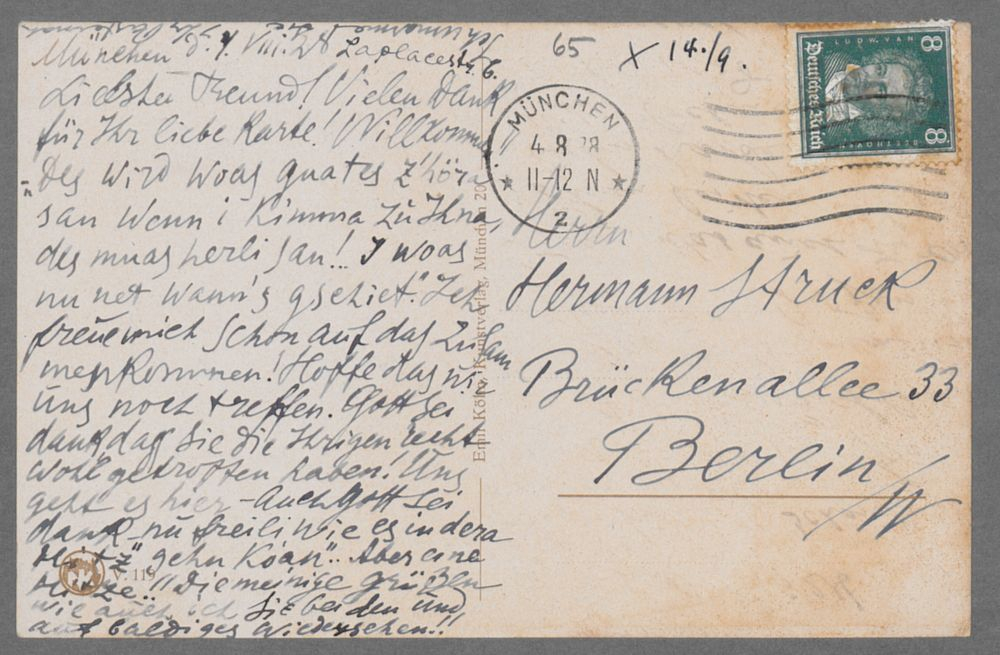 München d. 4 VIII. 28 Laplacestr. 6.
Liebster Freund! Vielen Dank
für Ihr liebe Karte! Willkommen
"Des wird woas guates z'hörn
san wenn i kimma zu Ihna,
des muas herli san!.. I woas
nu net wann's gschiet." Ich
freue mich schon auf das Zusam
menkommen! Hoffe das wir
uns noch treffen. Gott sei
dank das Sie die Ihrigen recht
wohl getroffen haben! Uns
geht es hier - Auch Gott sei
dank - nu freili wie es in dera
"Hitz" gehn koan".. Aber eine
Hitze.." Die meinige grüßen
wie auch ich Sie beiden und
auf baldiges Wiedersehen!!
65
X 14./9.
MÜNCHEN
4.8 28
11-12 N
2
LUDW. VAN
BEETHOVEN
Deutsches Reich
8
8
Herrn
Hermann Struck
Brückenallee 33
Berlin
W
Emil Köhn, Kunstverlag, München 20
V. 119